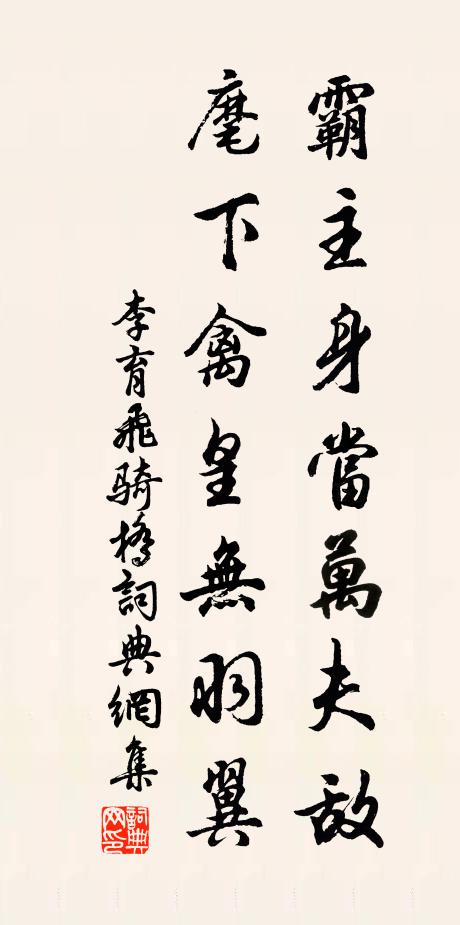 霸主身當萬夫敵
麾下禽皇無羽翼
李育飛騎橋詞典網集
詞典網印